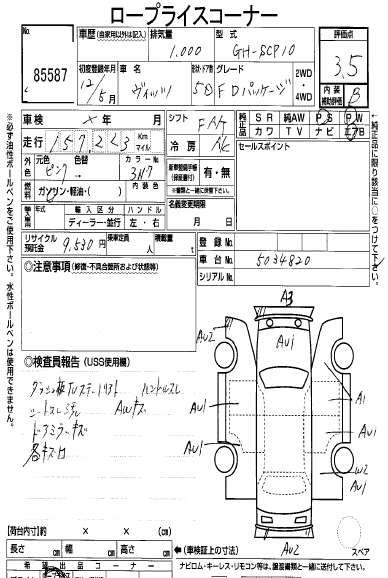 ロープライスコーナー
85587
車歴 (自家用以外は記入)
排気量 1.000
型式 GH-SCP10
評価点 3.5
初度登録年月 12/5月
車名 ヴィッツ
形状・ドア数 5D
グレード FDパッケージ
2WD・4WD
内装 補助評価 B
車検 × 年 月
シフト FAT
純正品 SR 純正AW PS PW
カワ TV ナビ エアB
走行 157,223 Km マイル
冷房 AC
セールスポイント
元色 ピンク 色替
カラーNo. 3N7
内装色
新車整備手帳(保証書付) 有・無
(※書類と一緒に提供されて下さい)
燃料 ガソリン・軽油・( )
名義変更期限 月 日
輸入車 年式 輸入区分 ディーラー・並行
ハンドル 左・右
リサイクル預託金 9,530円
乗車定員 人
積載量 t
登録No.
車台No. 5034820
シリアルNo.
○注意事項 (修復・不具合箇所および状態等)
○検査員報告 (USS使用欄)
トアミラーキズ
各キズ凹
AWキズ
A3
AU2
AU1
AU1
AU1
A1
AU1
W2
AU1
AU2
スペア
【荷台内寸】 約 × × (cm)
長さ cm 幅 cm 高さ cm
(車検証上の寸法)
ナビロム・キーレス・リモコン等は、譲渡書類と一緒に送付して下さい。
希望出品コーナー
※必ず油性ボールペンをご使用下さい。水性ボールペンは使用できません。